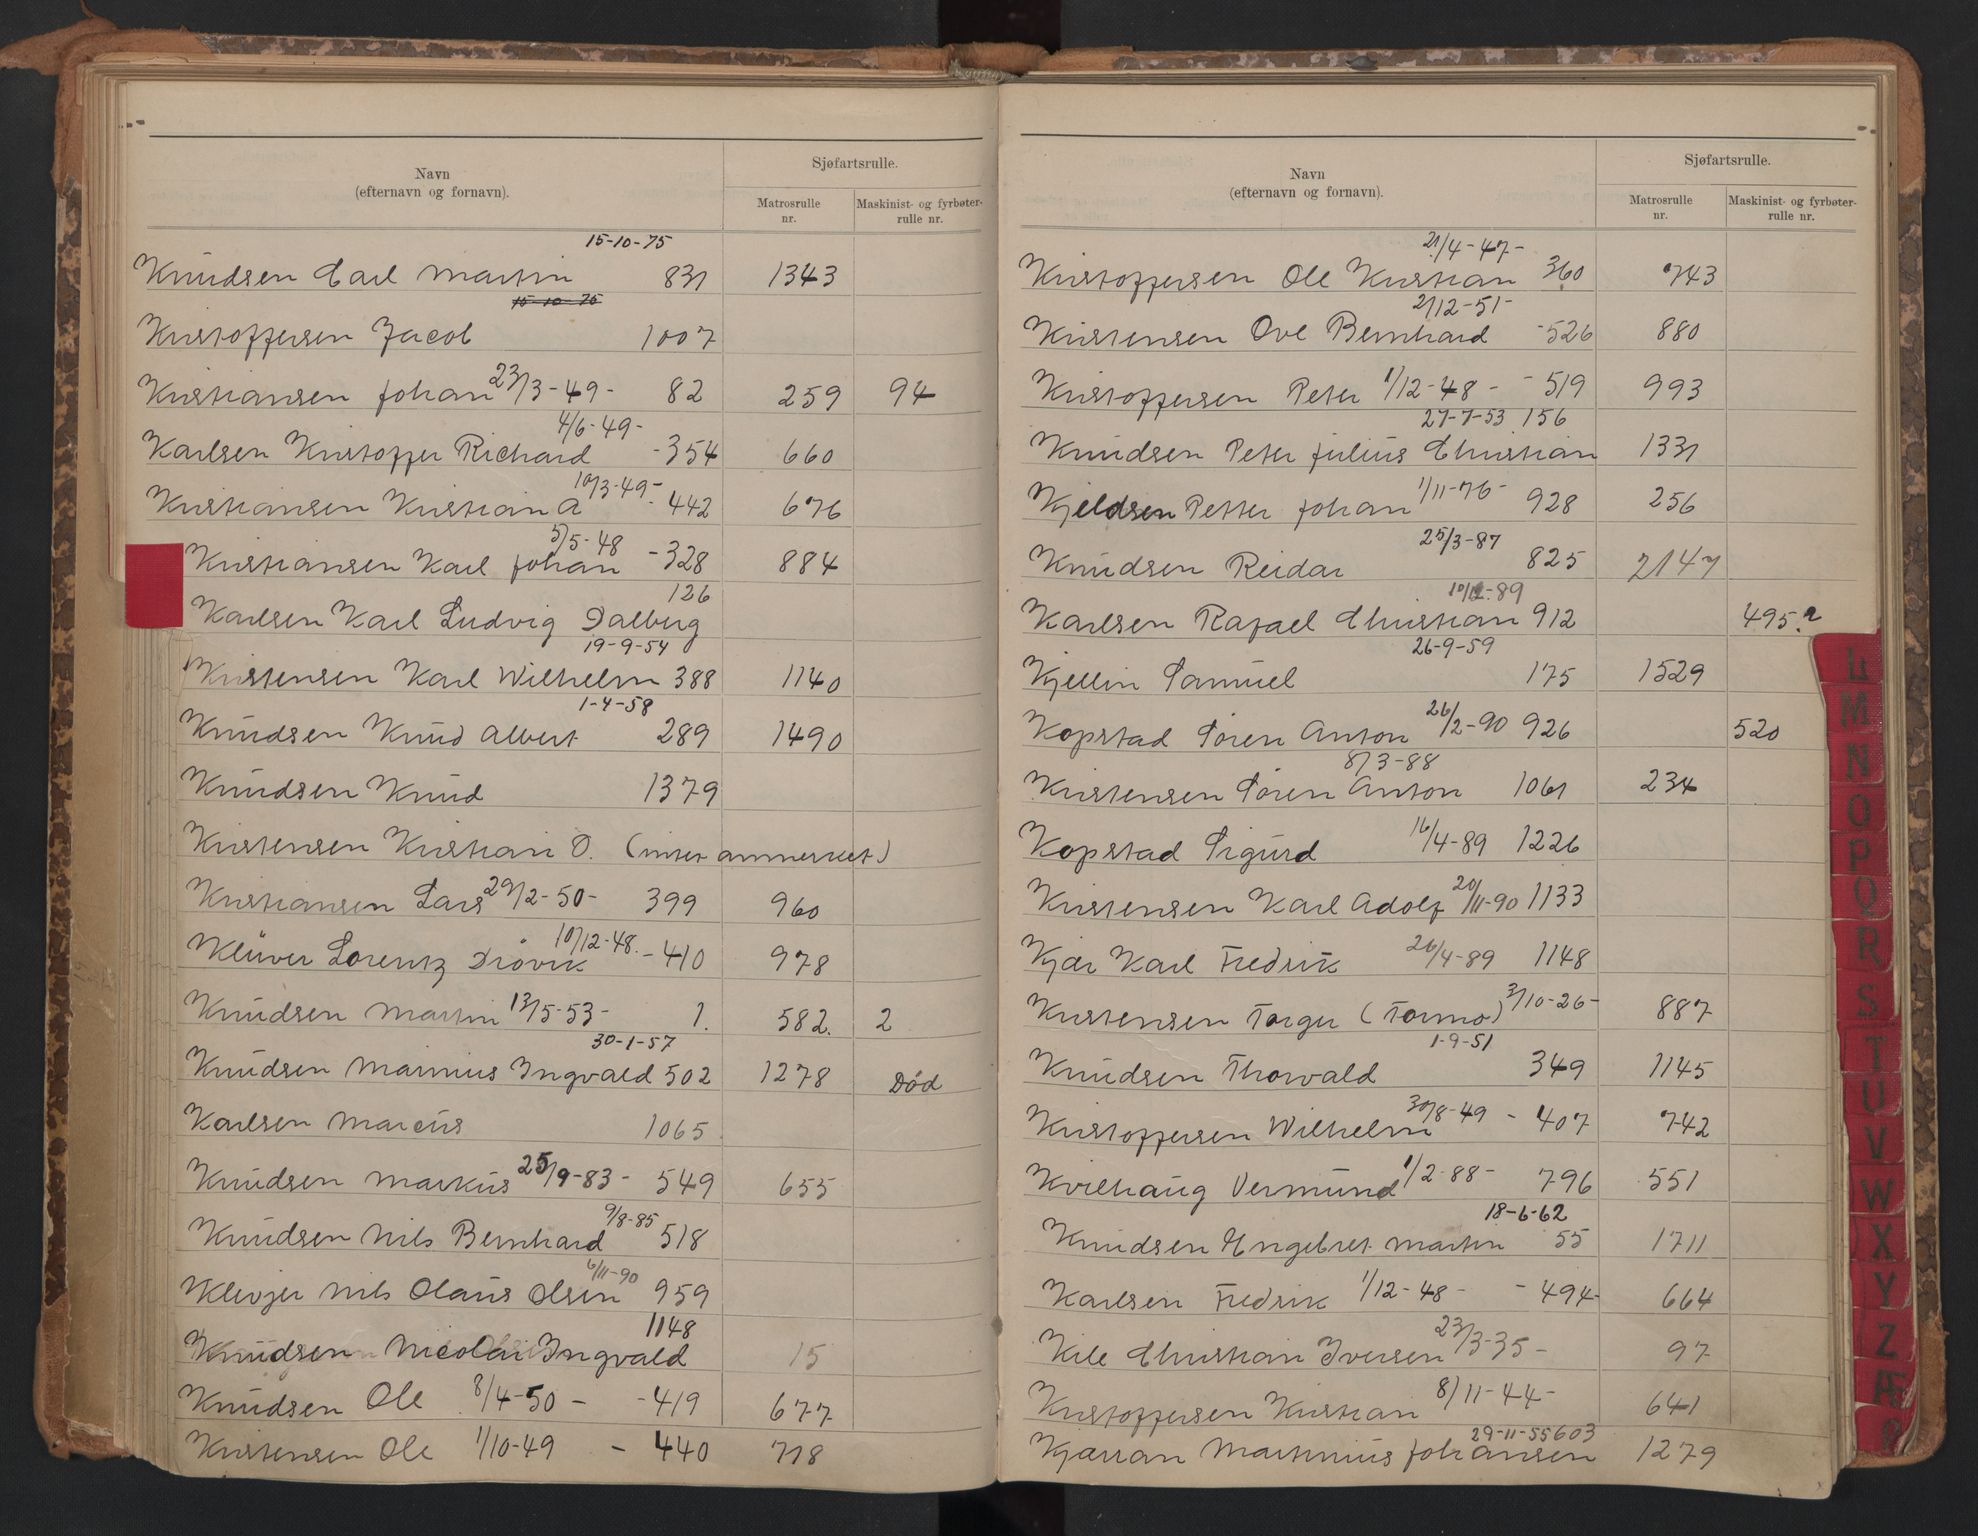 Navn
(efternavn og fornavn).
Sjøfartsrulle.
Matrosrulle nr.
Maskinist- og fyrbøterrulle nr.
15-10-75
Knudsen Carl Martin 831 1343
15-10-75
Kristoffersen Jacob 1007
Kristiansen Johan 23/3-49- 82 259 94
4/6-49-
Karlsen Kristoffer Richard -354 660
10/3-49-
Kristiansen Kristian A -442 676
5/5-48
Kristiansen Karl Johan -328 884
126
Karlsen Karl Ludvig Dalberg
19-9-54
Kristensen Karl Wilhelm 388 1140
1-4-58
Knudsen Knud Albert 289 1490
Knudsen Knud 1379
Kristensen Kristian O. (intet anmerket)
Kristiansen Lars 29/2-50- 399 960
10/12-48.
Klüver Lorentz Diøvik -410 978
Knudsen Martin 13/5-53- 1. 582. 2
30-1-57
Knudsen Marinius Ingvald 502 1278 Død
Karlsen Marcus 1065
Knudsen Markus 25/9-83- 549 655
9/8-85
Knudsen Nils Bernhard 518
6/11-90
Klevjer Nils Olaus Olsen 959
1148
Knudsen Nicolai Ingvald 15
Knudsen Ole 8/4-50 - -419 677
Kristensen Ole 1/10-49 - 440 718
Navn
(efternavn og fornavn).
Sjøfartsrulle.
Matrosrulle nr.
Maskinist- og fyrbøterrulle nr.
21/4-47-
Kristoffersen Ole Kristian 360 743
2/12-51-
Kristensen Ove Bernhard -526 880
Kristoffersen Peter 1/12-48 - -519 993
27-7-53 156
Knudsen Peter Julius Christian 1331
Kjeldsen Petter Johan 1/11-76- 928 256
25/3-87
Knudsen Reidar 825 2147
10/12-89
Karlsen Rafael Christian 912 495?
26-9-59
Kjellin Samuel 175 1529
Kopstad Søren Anton 26/2-90 926 520
8/3-88
Kristensen Søren Anton 1061 234
Kopstad Sigurd 16/4-89 1226
Kristensen Karl Adolf 20/11-90 1133
Kjær Karl Fredrik 26/4-89 1148
Kristensen Torger (Tormo) 3/10-26- 887
1-9-51
Knudsen Thorvald 349 1145
Kristoffersen Wilhelm 30/8-49 - 407 742
Kvilhaug Vermund 1/2-88- 796 551
18-6-62
Knudsen Engebret Martin 55 1711
Karlsen Fredrik 1/12-48- -494- 664
Kile Christian Iversen 23/3-35- 97
Kristoffersen Kristian 8/11-44- 641
29-11-55 603
Kjærran Martinius Johansen 1279
L
M
N
O
P
Q
R
S
T
U
V
W
X
Y
Z
Æ
Ø